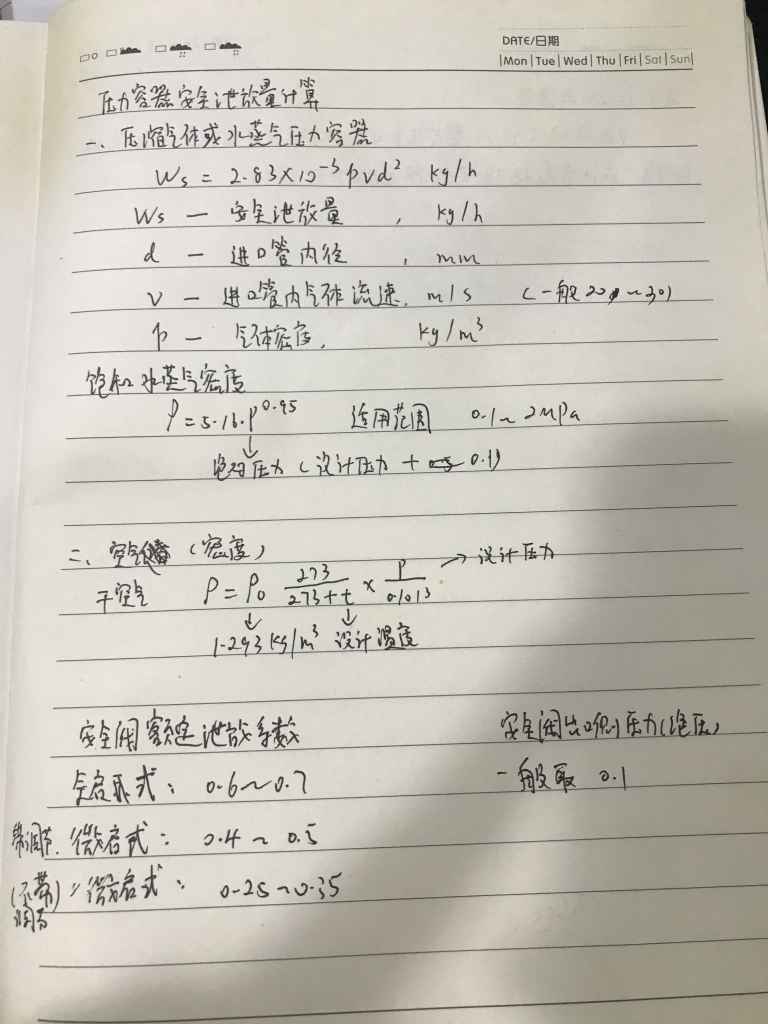 DATE/日期
Mon Tue Wed Thu Fri Sat Sun
压力容器安全泄放量计算
一、压缩气体或水蒸气压力容器
Ws = 2.83×10⁻³ρvd² kg/h
Ws — 安全泄放量, kg/h
d — 进口管内径, mm
v — 进口管内气体流速, m/s (一般20~30)
ρ — 气体密度, kg/m³
饱和水蒸气密度
ρ=5.16·P^0.95 适用范围 0.1~2MPa
绝对压力(设计压力+0.1)
二、空气(密度)
干空气 ρ=ρ₀ 273/(273+t) × P/0.1013 → 设计压力
1.293kg/m³ 设计温度
安全阀额定泄放系数 安全阀出口侧压力(绝压)
全启式: 0.6~0.7 一般取 0.1
带调节. 微启式: 0.4~0.5
(不带)〃微启式: 0.25~0.35
调节